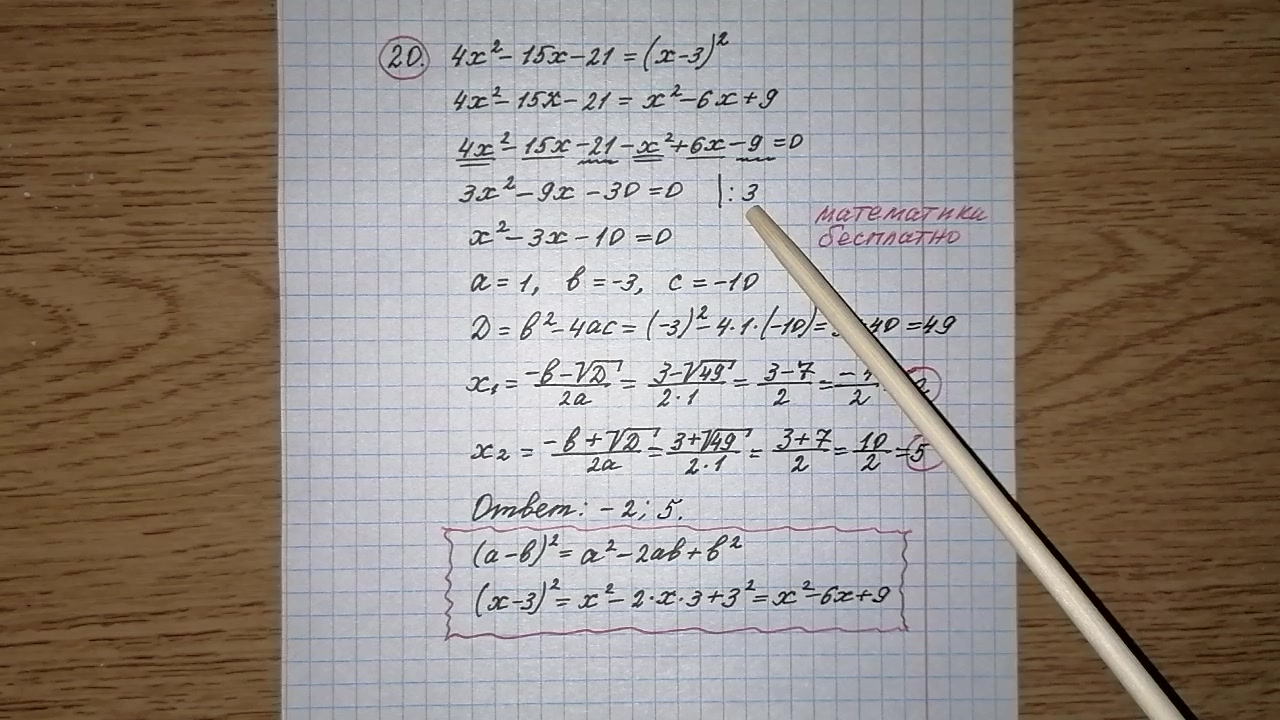 20. 4x² - 15x - 21 = (x-3)²
4x² - 15x - 21 = x² - 6x + 9
4x² - 15x - 21 - x² + 6x - 9 = 0
3x² - 9x - 30 = 0 | : 3
математики
бесплатно
x² - 3x - 10 = 0
a = 1, b = -3, c = -10
D = b² - 4ac = (-3)² - 4·1·(-10) = 40 = 49
x₁ = (-b - √D)/2a = (3 - √49)/(2·1) = (3 - 7)/2 = /2
x₂ = (-b + √D)/2a = (3 + √49)/(2·1) = (3 + 7)/2 = 10/2 = 5
Ответ: -2; 5.
(a-b)² = a² - 2ab + b²
(x-3)² = x² - 2·x·3 + 3² = x² - 6x + 9